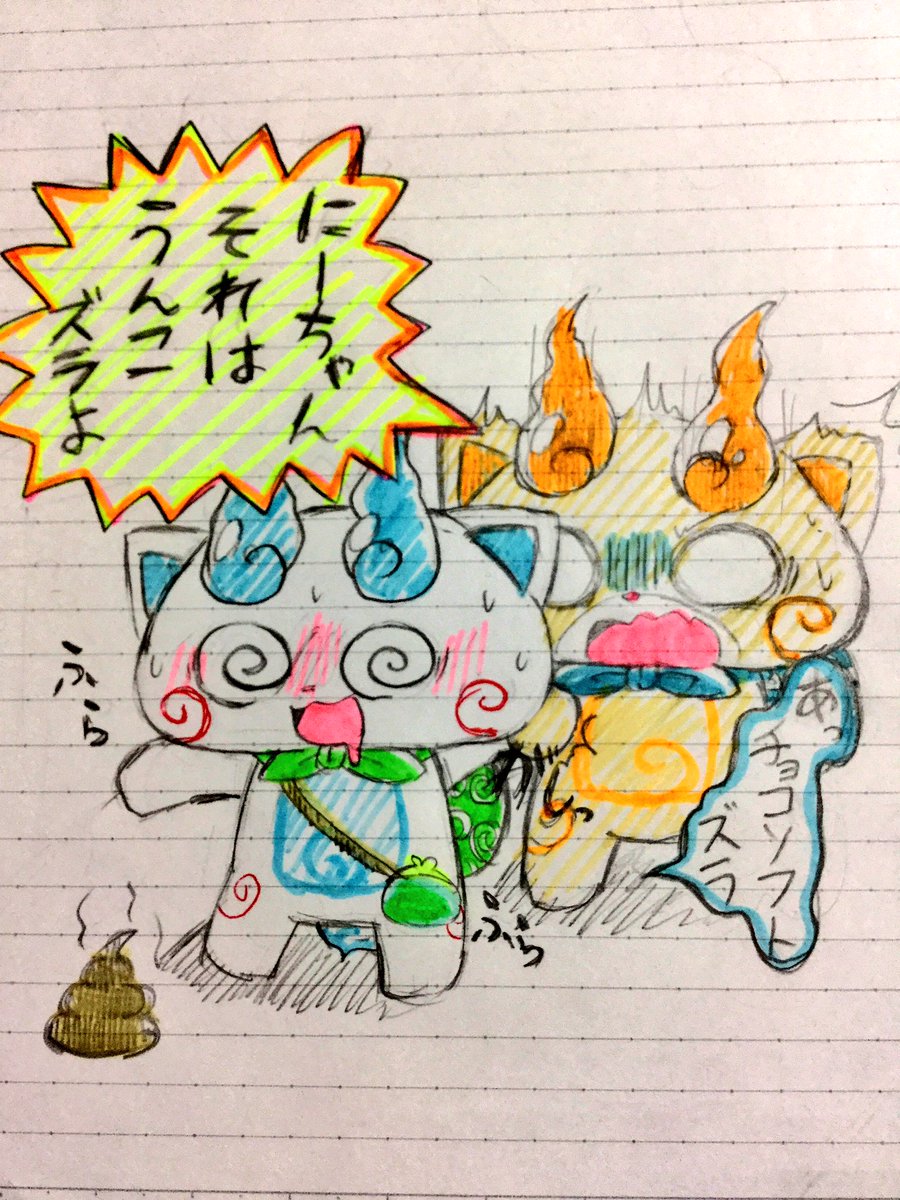 にーちゃん
それは
うんこー
ズラよ
あっ
チョコソフト
ズラ
ふら
ふら